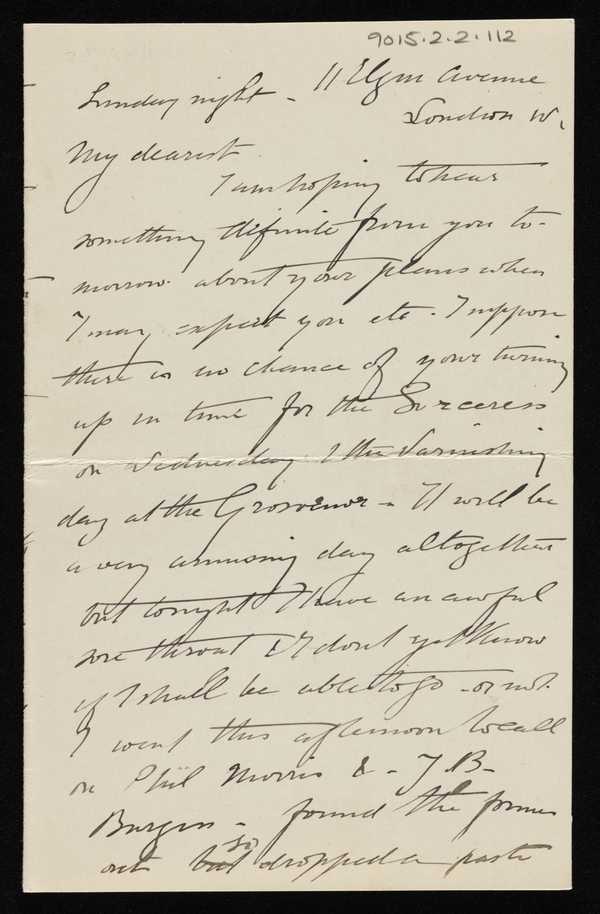 9015.2.2.112
Sunday night - 11 Elgin Avenue
London W.
My dearest
I am hoping to hear
something definite from you to-
morrow about your plans when
I may expect you etc. I suppose
there is no chance of your turning
up in time for the Sorceress
on Wednesday & the Varnishing
day at the Grosvenor - It will be
a very amusing day altogether
but tonight I have an awful
sore throat & I dont yet know
if I shall be able to go - or not.
I went this afternoon to call
on Phil Morris & - J.B.
Burgess - found the former
out but so dropped a paste